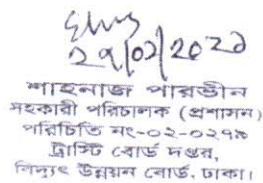 ২৭/০১/২০২১
শাহনাজ পারভীন
সহকারী পরিচালক (প্রশাসন)
পরিচিতি নং-০২-০২৭৯
ট্রাস্টি বোর্ড দপ্তর,
বিদ্যুৎ উন্নয়ন বোর্ড, ঢাকা।